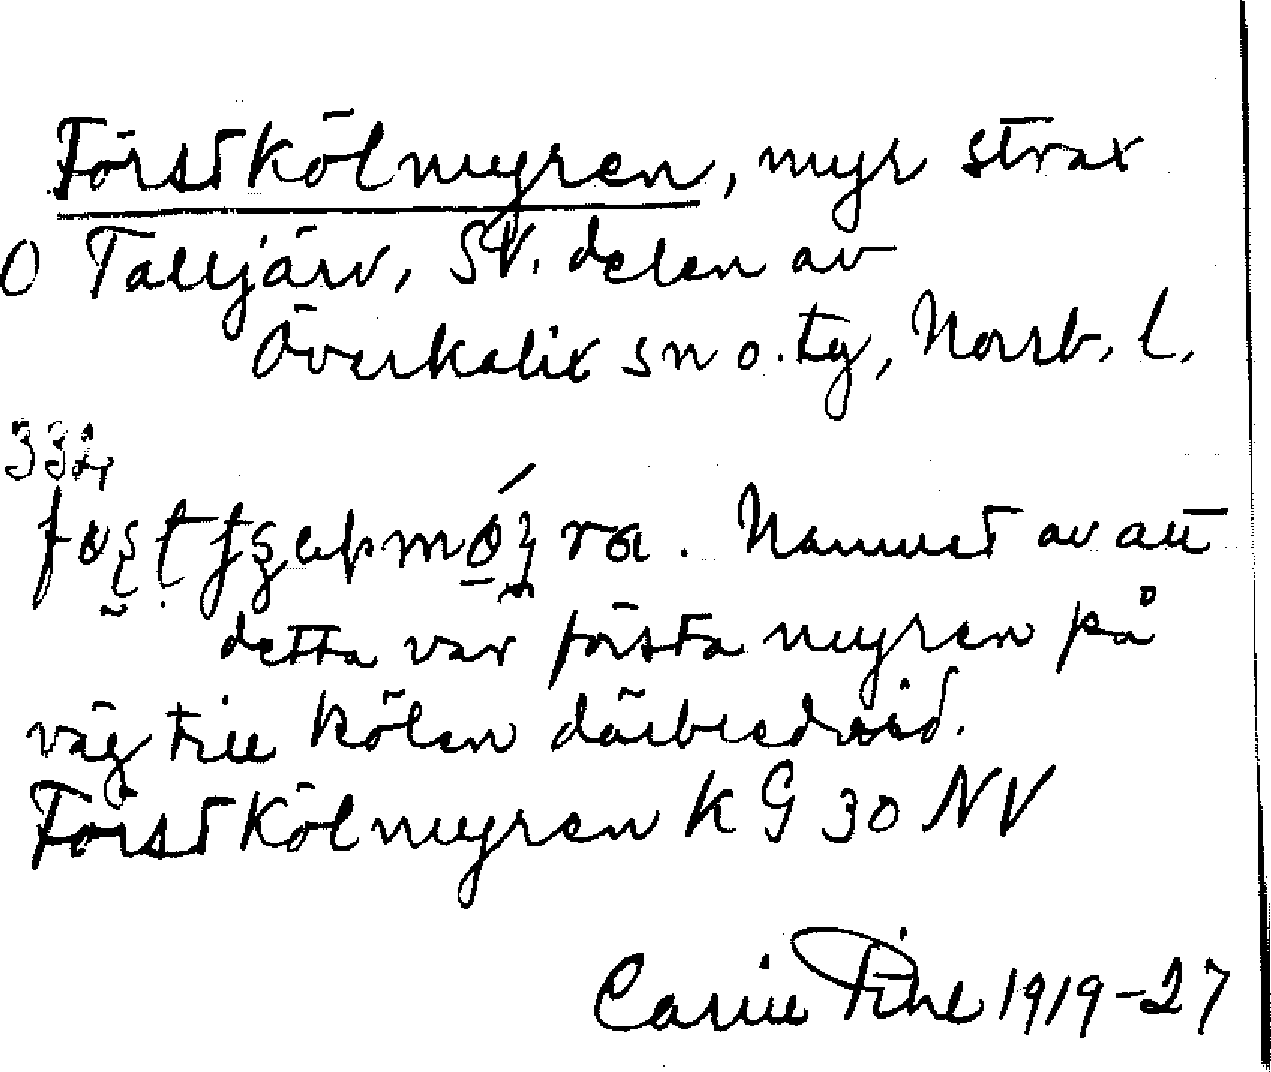 Förstkölmyren, myr strax
O Talljärv, SV. delen av
Överkalix sn o. tg, Norrb. l.
Namnet av att
detta var första myren på
väg till Kölen därbredvid.
Förstkölmyren k G 30 NV
Carin Pihl 1919-27